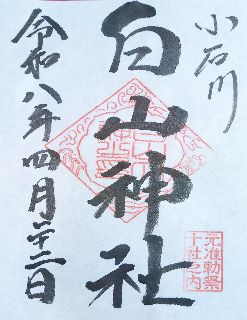 小石川
白山神社
元准勅祭
十社之内
令和八年四月二十二日